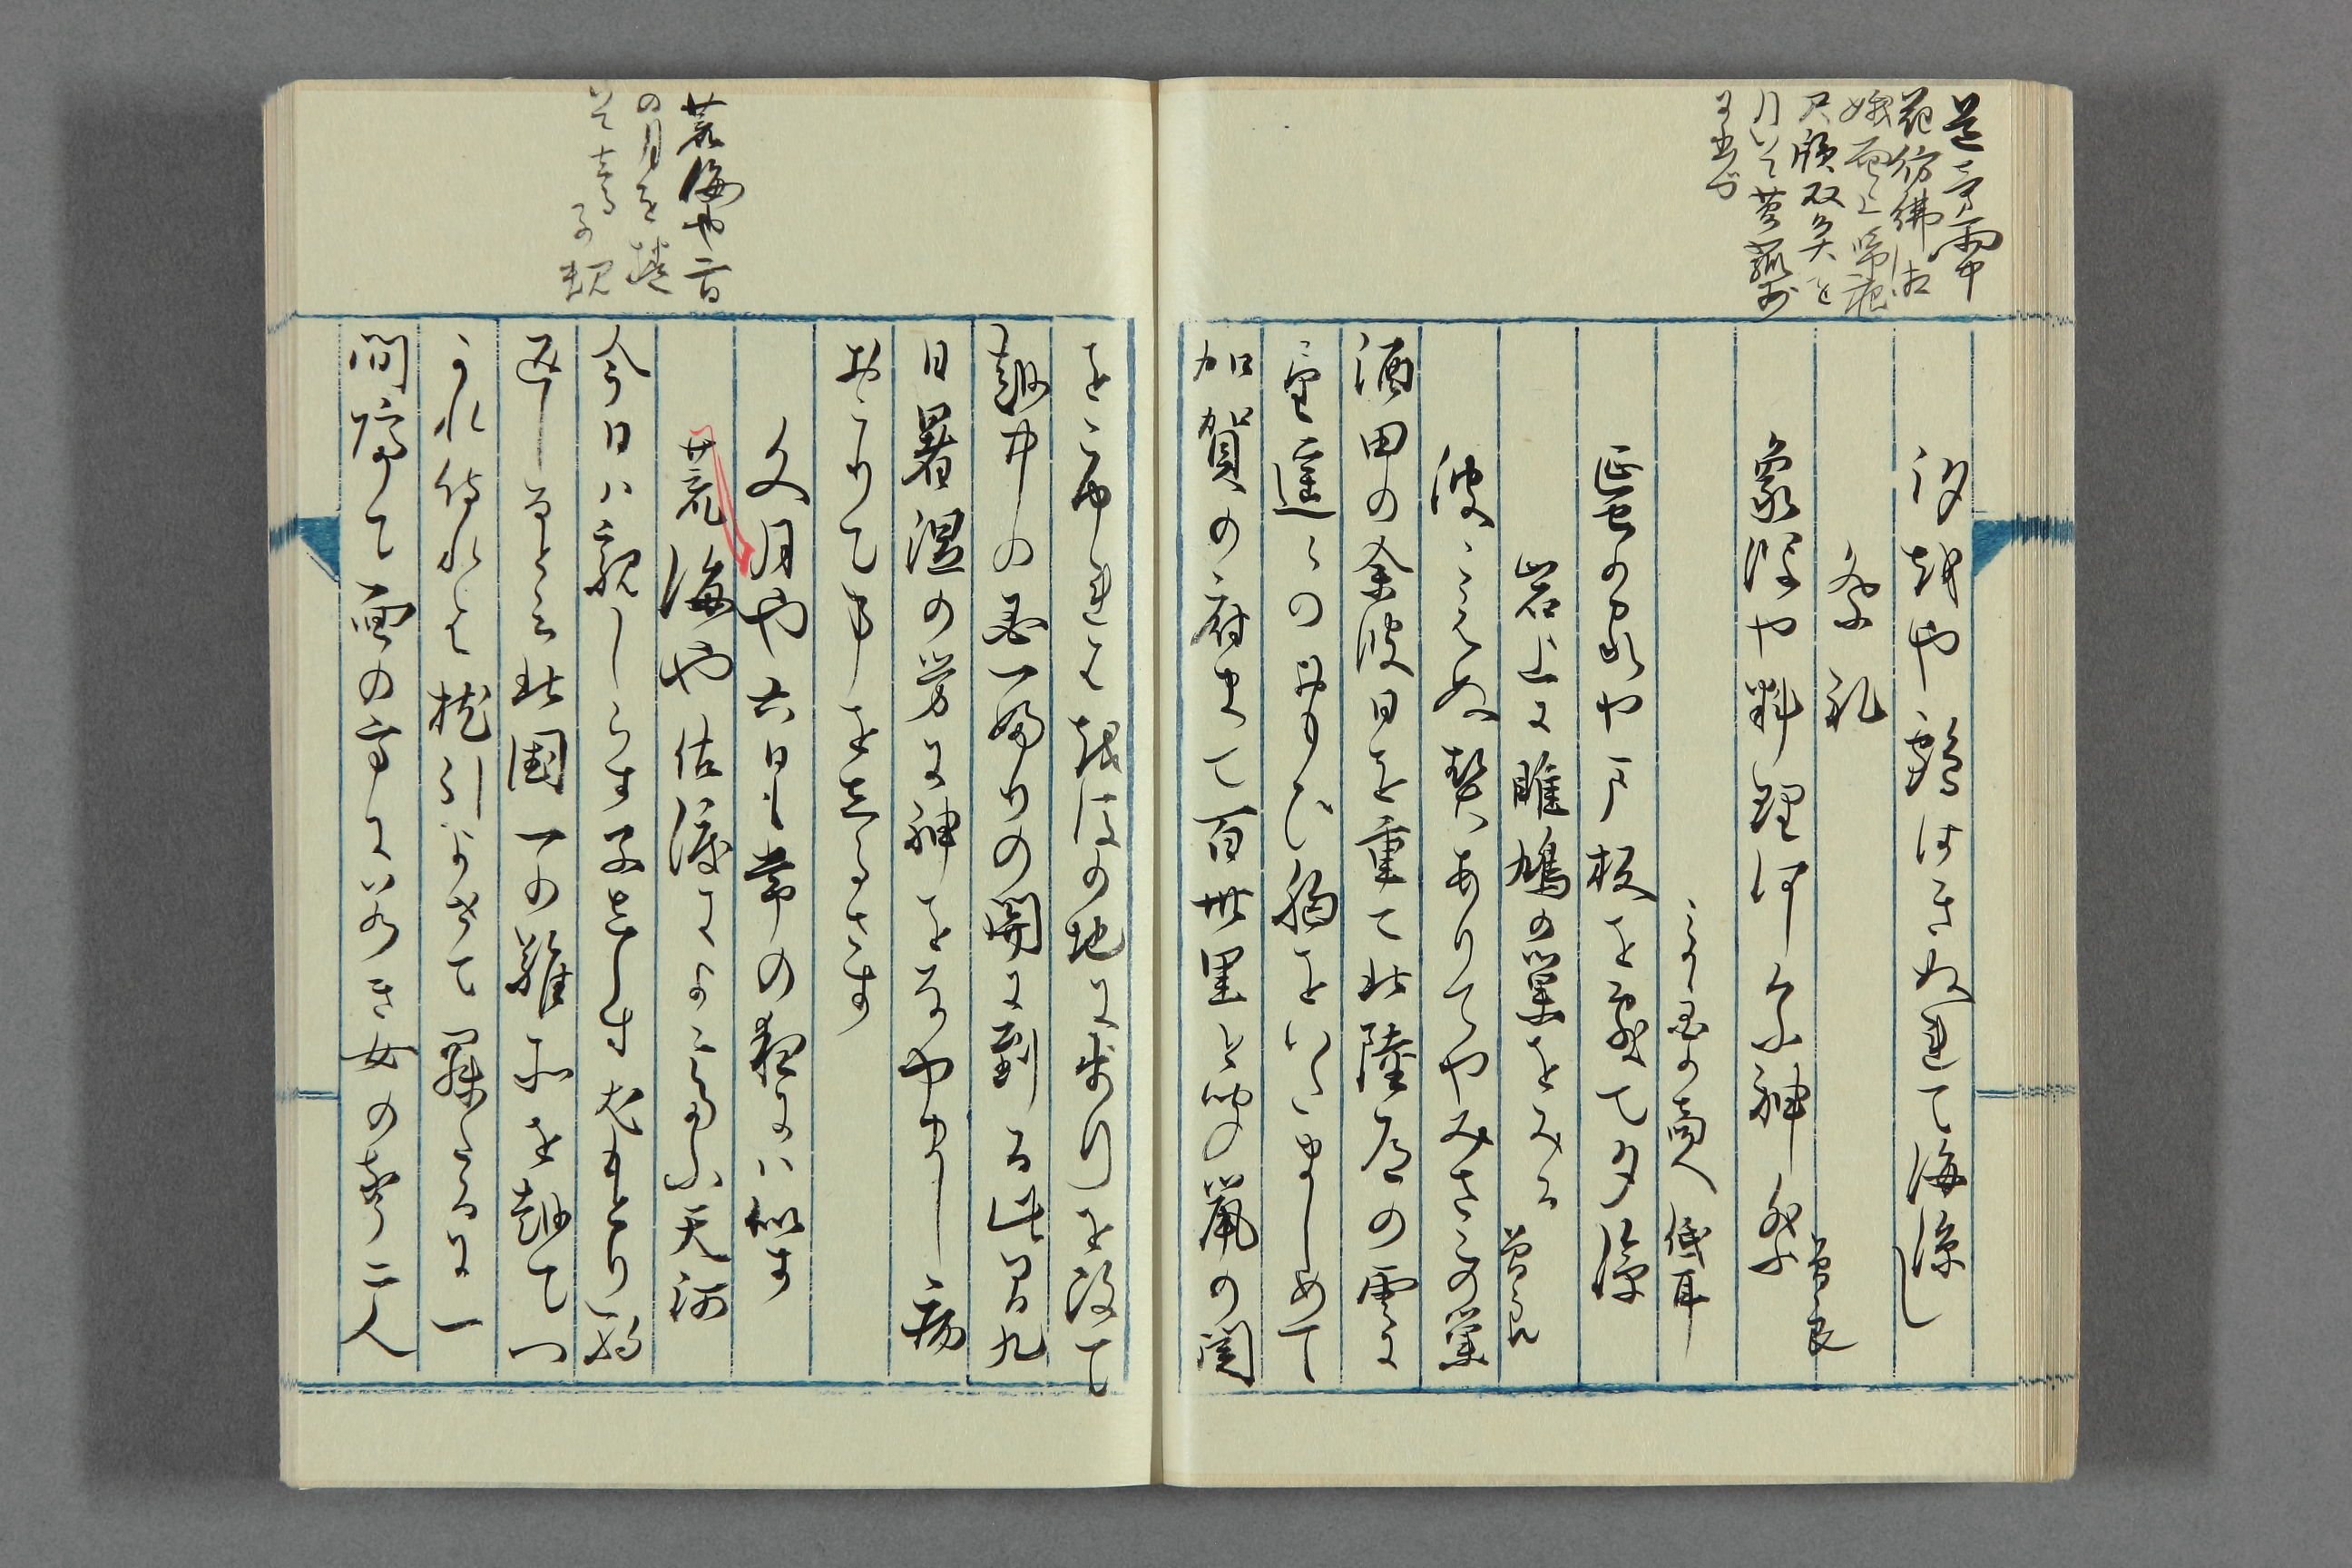 汐越や鶴はきぬれて海涼し
祭礼
象潟や料理何くふ神祭 曽良
みのゝ国の商人 低耳
蜑の家や戸板を敷て夕涼
岩上に雎鳩の巣をみる 曽良
波こえぬ契ありてやみさこの巣
酒田の余波日を重て北陸道の雲に
望遥々のおもひ胸をいたましめて
加賀の府まて百卅里と聞鼠の関
をこゆれは越後の地に歩行を改て
越中の国一ふりの関に到る此間九
日暑湿の労に神をなやまし病
おこりて事をしるさす
文月や六日も常の夜には似す
荒海や佐渡によこたふ天河
今日は親しらす子しらす犬もとり駒
返しなと云北国一の難所を越てつ
かれ侍れは枕引よせて寐たるに一
間隔て面の方に若き女の声二人
荒海や二百
の月を
子規